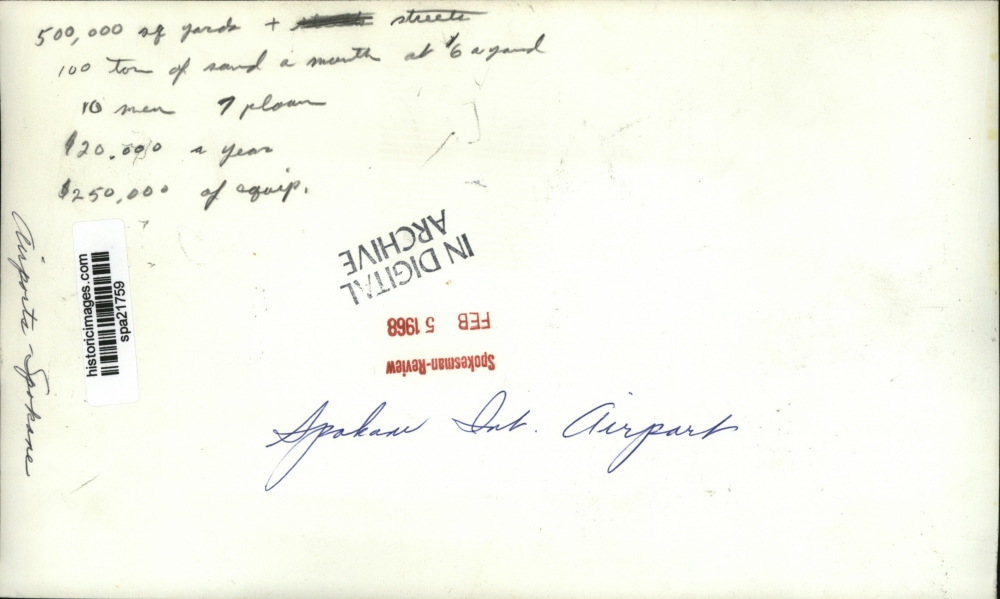 500,000 sq yards + streets
100 ton of sand a month at $6 a yard
10 men 7 plows
$20,000 a year
$250,000 of equip.
Airports - Spokane
historicimages.com
spa21759
IN DIGITAL
ARCHIVE
FEB 5 1968
Spokesman-Review
Spokane Int. Airport